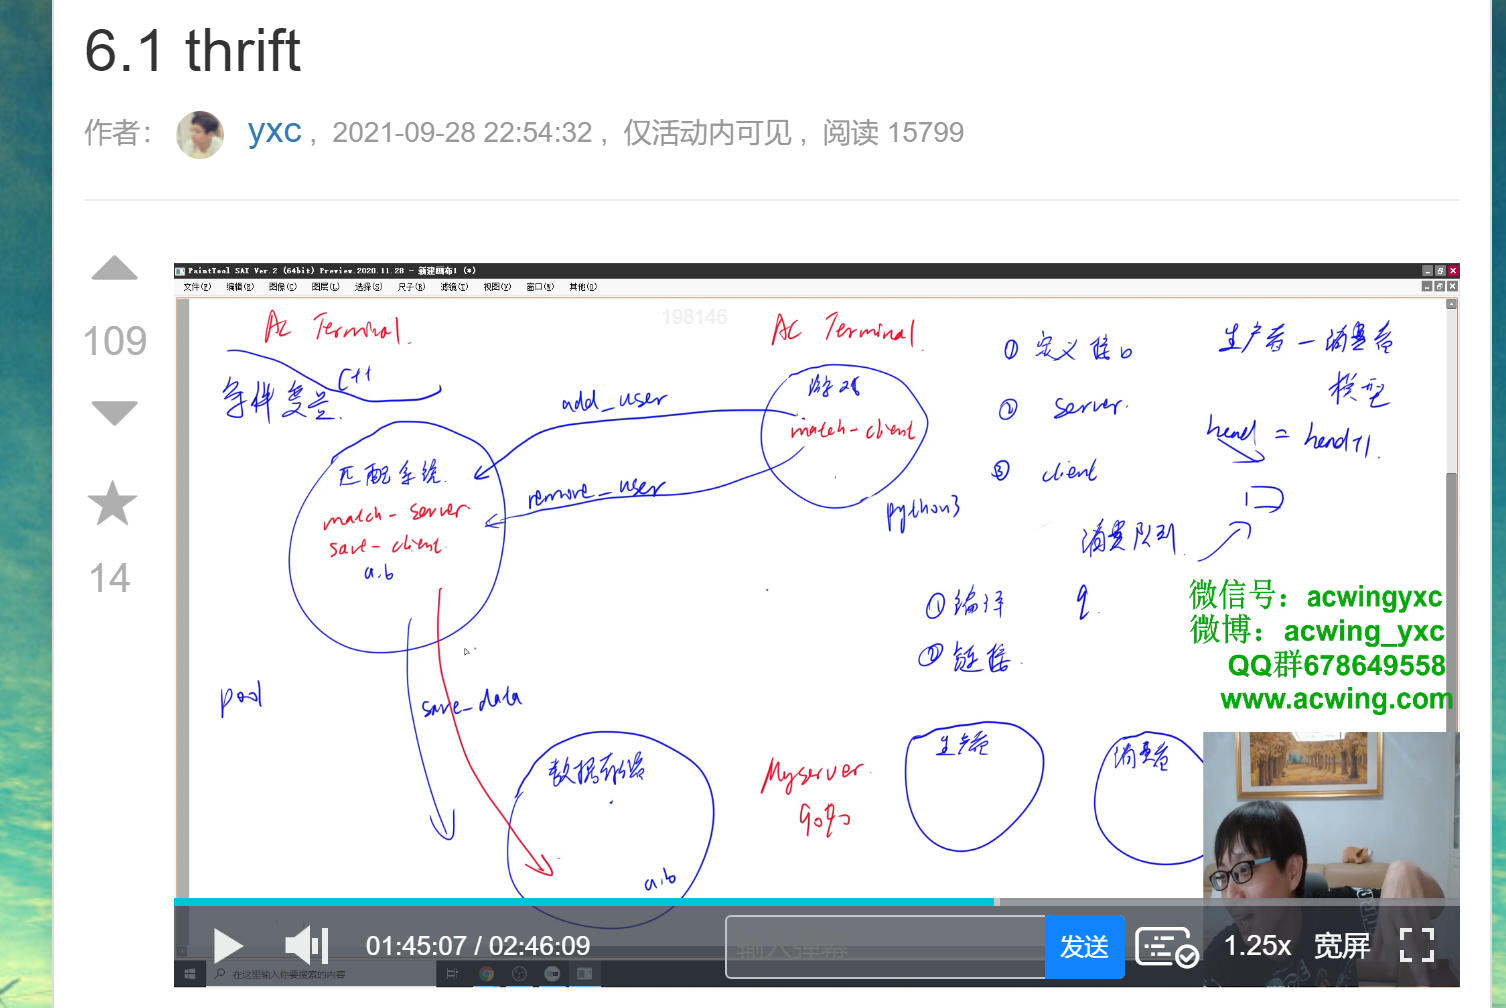 6.1 thrift
作者： yxc， 2021-09-28 22:54:32， 仅活动内可见， 阅读 15799
109
14
PaintTool SAI Ver.2 (64bit) Preview.2020.11.28 - 新建画布1 (*)
文件(F) 编辑(E) 图像(C) 图层(L) 选择(S) 尺子(R) 滤镜(T) 视图(V) 窗口(W) 其他(O)
198146
AC Terminal.
AC Terminal.
C++
条件变量.
匹配系统.
match-server
save-client.
a.b
add_user
remove_user
游戏
match-client
python3
① 定义接口
② server.
③ client
生产者－消费者
模型
head = head+1.
消费队列.
q.
①编译
②链接.
pool
save_data
数据存储
a.b
Myserver.
9090
生产者
消费者
微信号：acwingyxc
微博：acwing_yxc
QQ群678649558
www.acwing.com
01:45:07 / 02:46:09
输入弹幕
发送
1.25x 宽屏
在这里输入你要搜索的内容